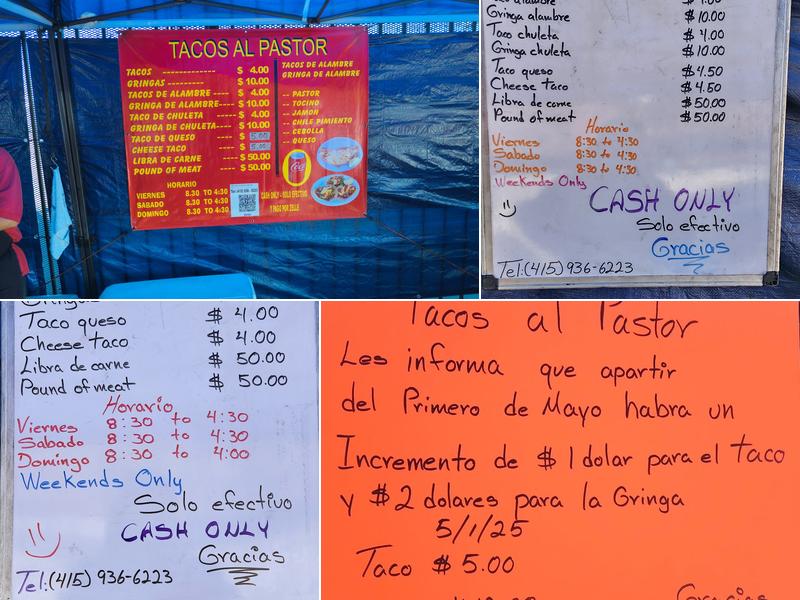 TACOS AL PASTOR
TACOS ------------- $ 4.00
GRINGAS --------- $ 10.00
TACOS DE ALAMBRE ---- $ 4.00
GRINGA DE ALAMBRE---- $ 10.00
TACO DE CHULETA ---- $ 4.00
GRINGA DE CHULETA---- $ 10.00
TACO DE QUESO $ 5.00
CHEESE TACO $ 5.00
LIBRA DE CARNE $ 50.00
POUND OF MEAT $ 50.00
HORARIO
VIERNES 8.30 TO 4:30
SABADO 8.30 TO 4:30
DOMINGO 8.30 TO 4:30
TACOS DE ALAMBRE
GRINGA DE ALAMBRE
-- PASTOR
-- TOCINO
-- JAMON
-- CHILE PIMIENTO
-- CEBOLLA
-- QUESO
CASH ONLY - SOLO EFECTIVO
Y PAGO POR ZELLE
Gringa alambre $ 10.00
Taco chuleta $ 4.00
Gringa chuleta $ 10.00
Taco queso $ 4.50
Cheese taco $ 4.50
Libra de carne $ 50.00
Pound of meat $ 50.00
Horario
Viernes 8:30 to 4:30
Sabado 8:30 to 4:30
Domingo 8:30 to 4:30
Weekends Only
CASH ONLY
Solo efectivo
Gracias
Tel:(415) 936-6223
Taco queso $ 4.00
Cheese taco $ 4.00
Libra de carne $ 50.00
Pound of meat $ 50.00
Horario
Viernes 8:30 to 4:30
Sabado 8:30 to 4:30
Domingo 8:30 to 4:00
Weekends Only
Solo efectivo
CASH ONLY
Gracias
Tel:(415) 936-6223
Tacos al Pastor
Les informa que apartir
del Primero de Mayo habra un
Incremento de $ 1 dolar para el taco
y $ 2 dolares para la Gringa
5/1/25
Taco $ 5.00
Gracias